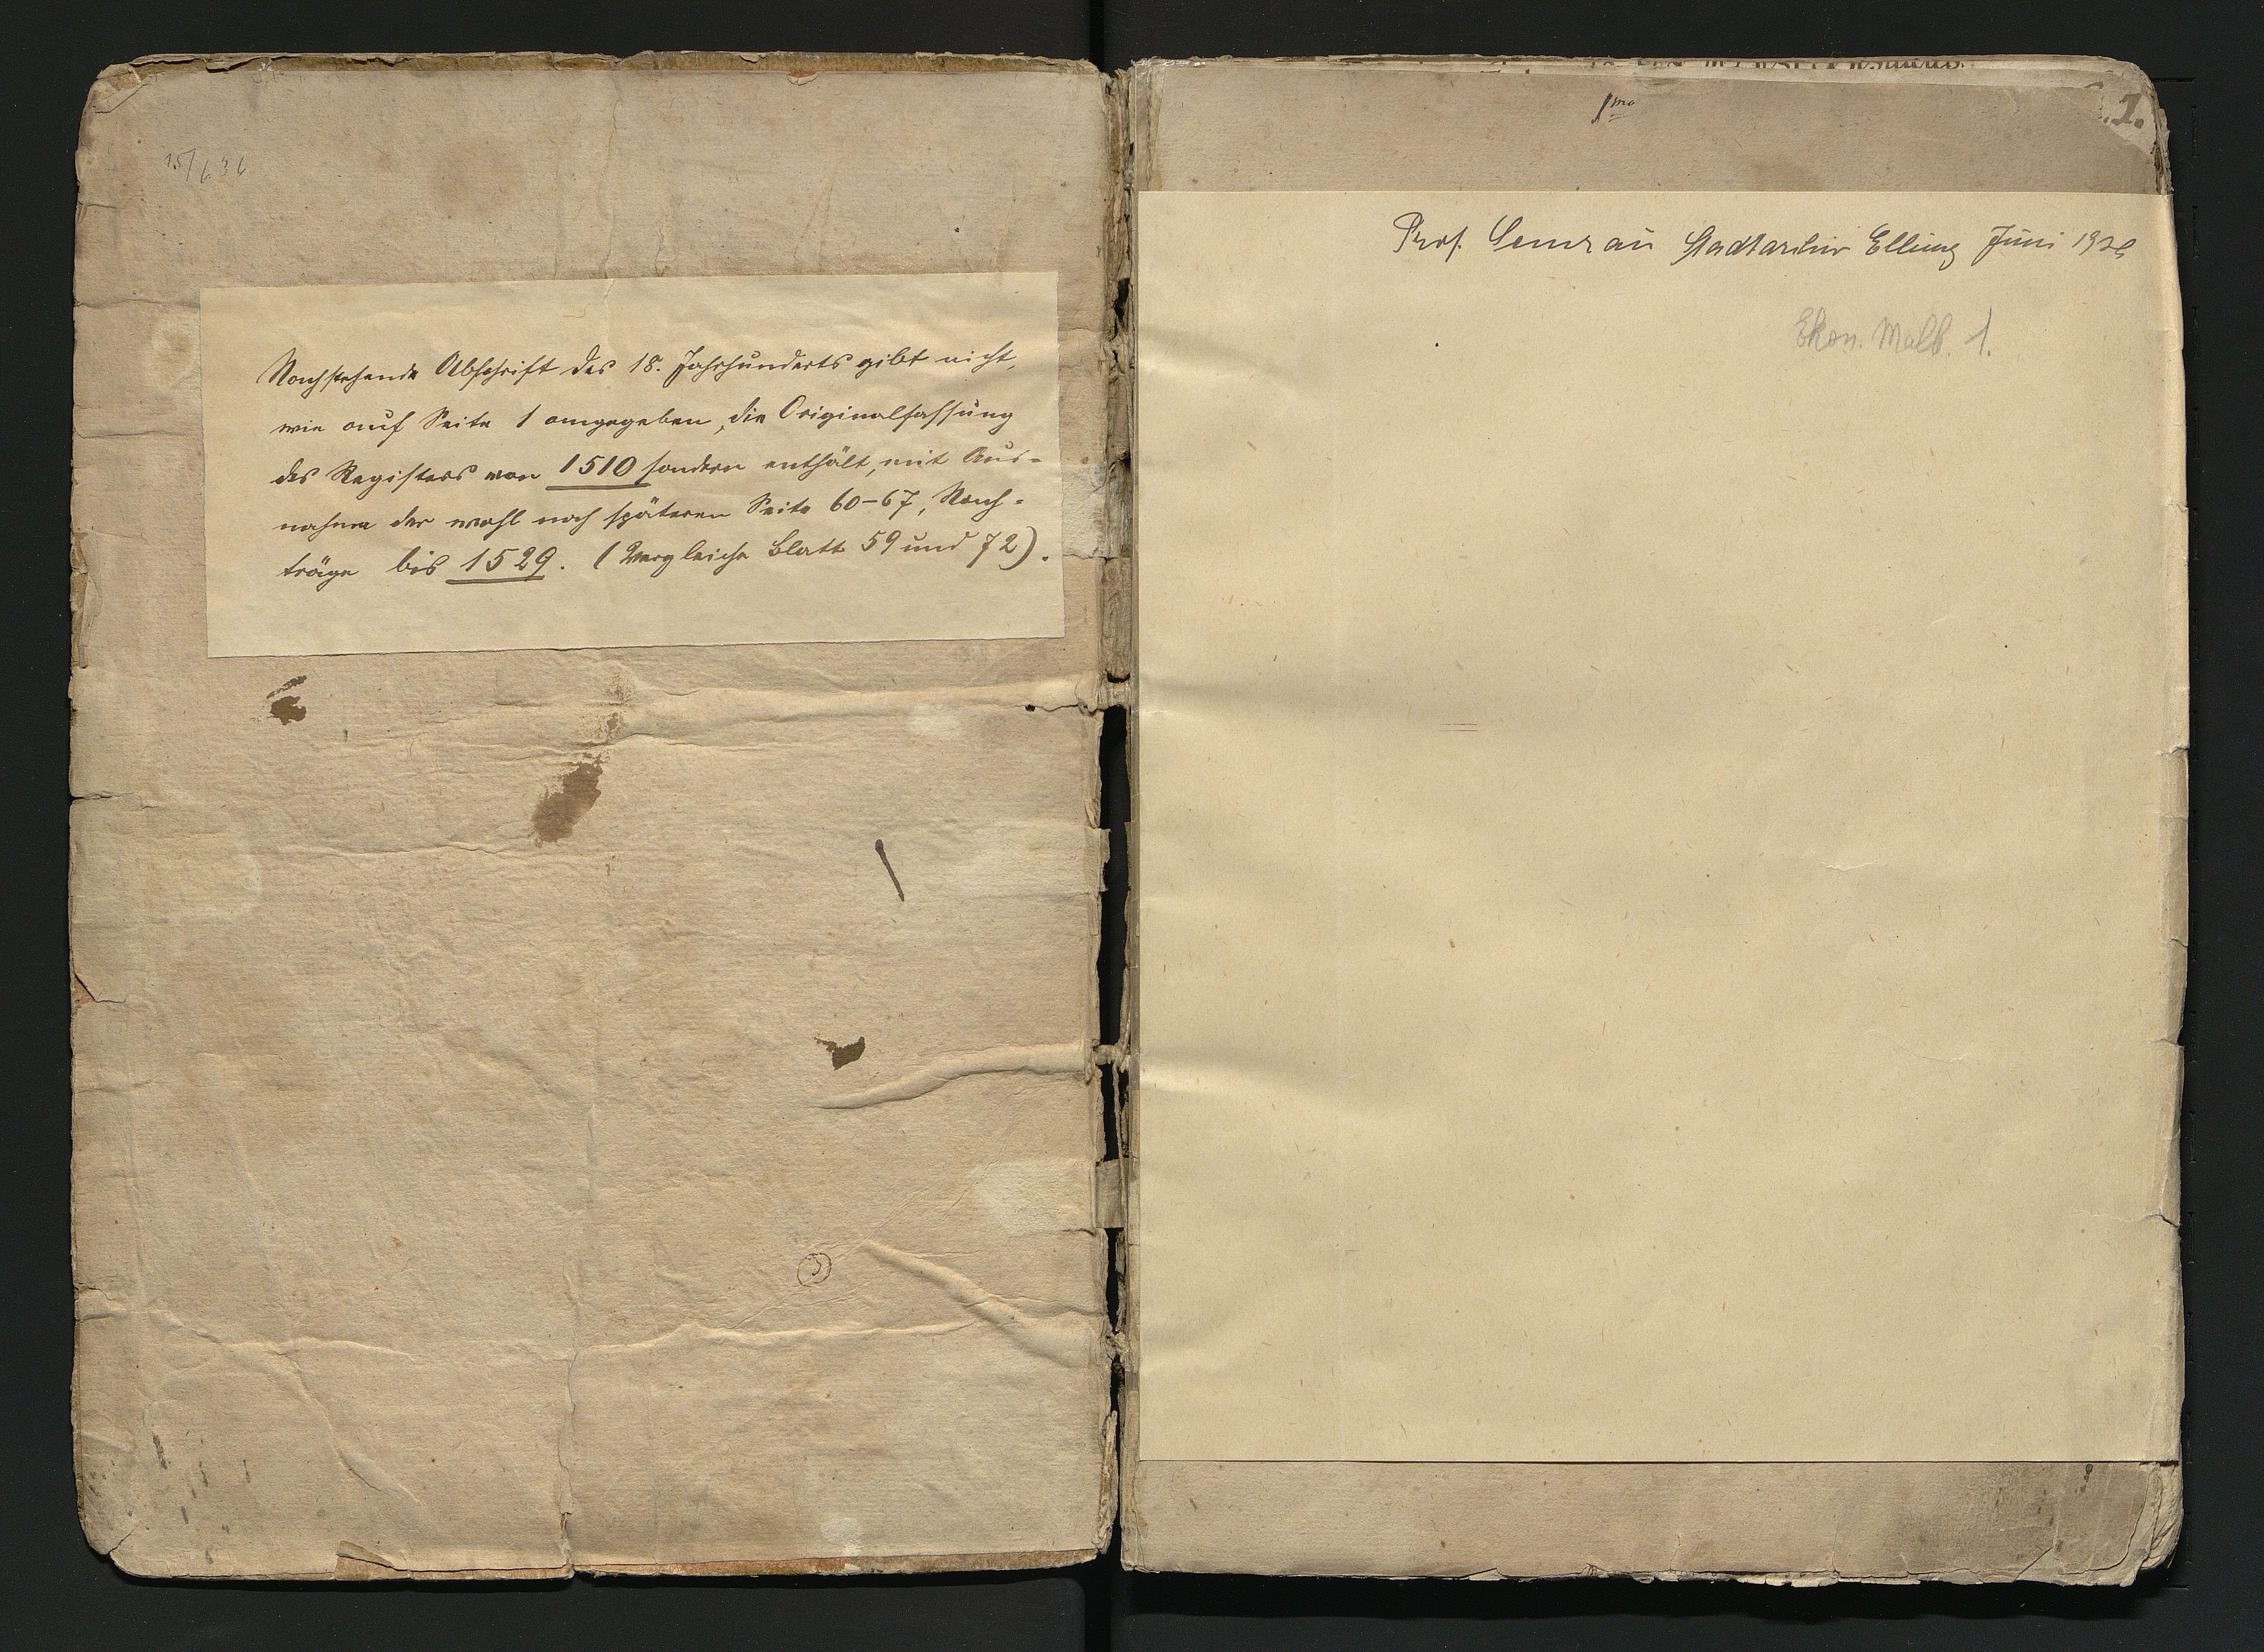 15/636
Nachstehende Abschrift des 18. Jahrhunderts gibt nicht,
wie auf Seite 1 angegeben, die Originalfassung
des Registers von 1510 sondern enthält, mit Aus-
nahme der wohl noch späteren Seite 60-67, Nach-
träge bis 1529. (Vergleiche Blatt 59 und 72).
1mo
1.
Prof. Semrau Stadtarchiv Elbing Juni
Ekon. Malb. 1.